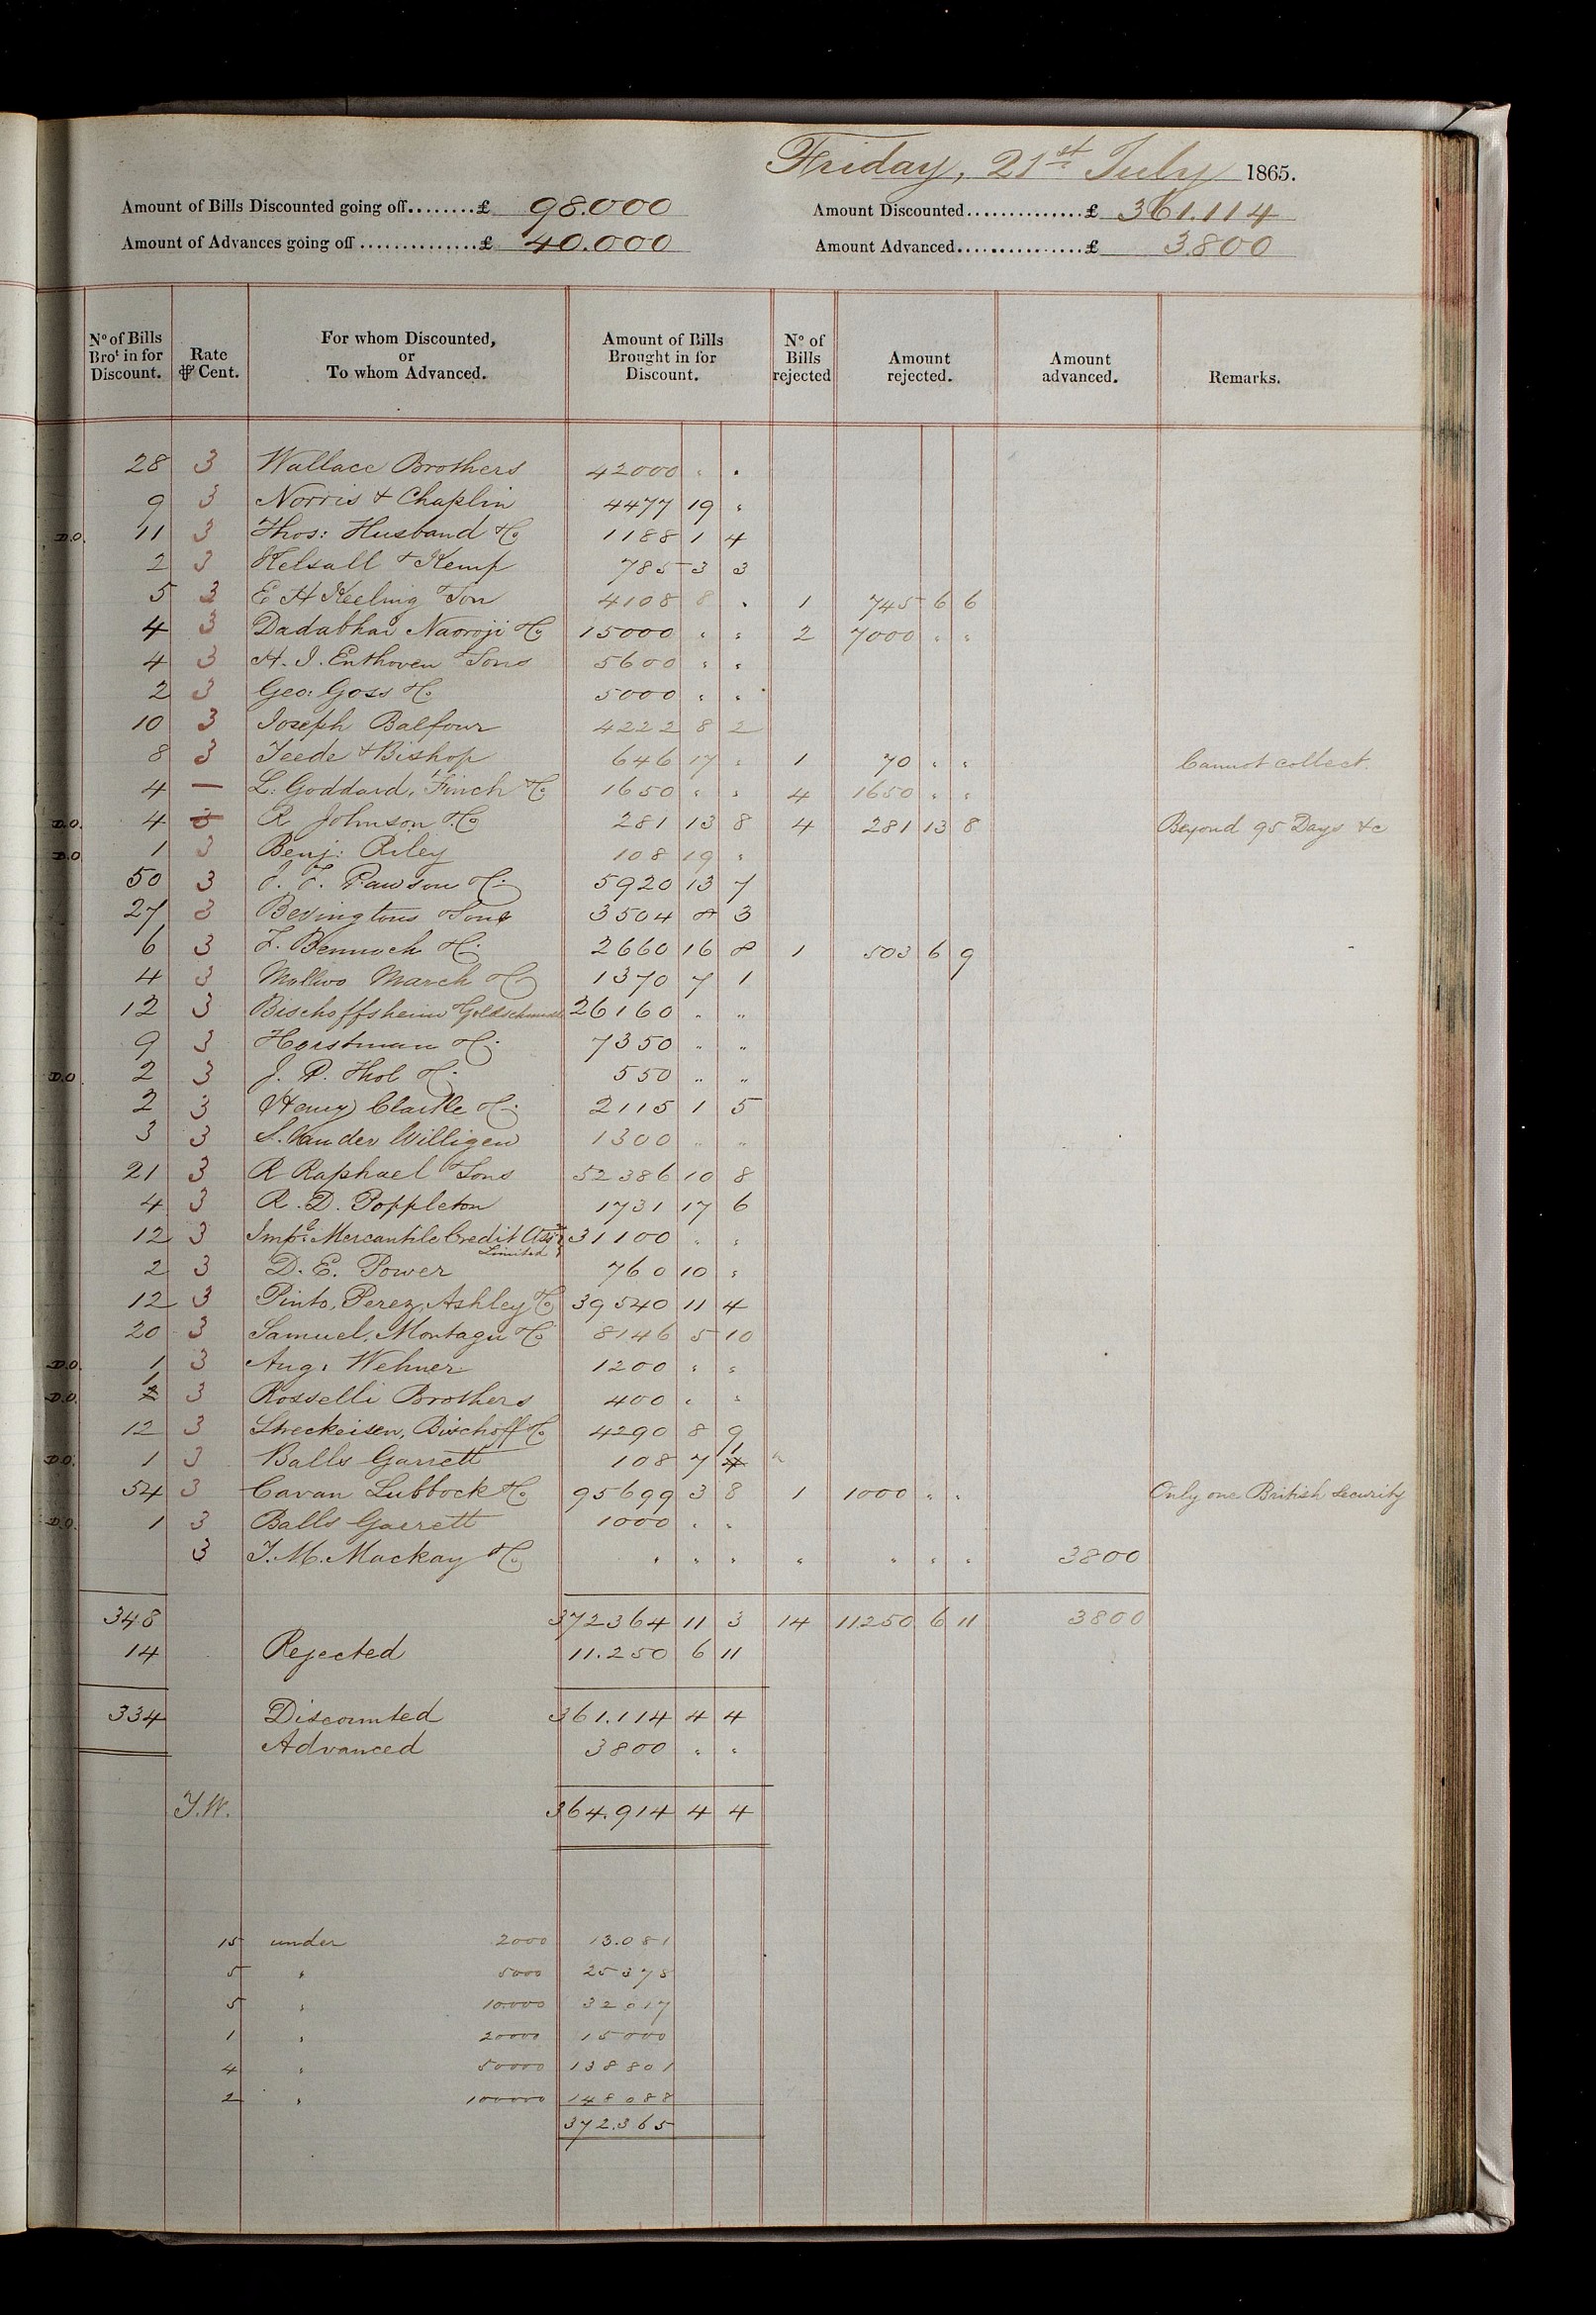 Friday, 21st July 1865.
Amount of Bills Discounted going off........£ 98.000
Amount Discounted..............£ 361.114
Amount of Advances going off..............£ 40.000
Amount Advanced...............£ 3.800
No of Bills Brot in for Discount. Rate ⅌ Cent. For whom Discounted, or To whom Advanced. Amount of Bills Brought in for Discount. No of Bills rejected Amount rejected. Amount advanced. Remarks.
28 3 Wallace Brothers 42000 " "
9 3 Norris & Chaplin 4477 19 "
D.O. 11 3 Thos: Husband & Co 1188 1 4
2 3 Kelsall & Kemp 785 3 3
5 3 E H Keeling & Son 4108 8 " 1 745 6 6
4 3 Dadabhai Naoroji & Co 15000 " " 2 7000 " "
4 3 H. J. Enthoven & Sons 5600 " "
2 3 Geo: Goss & Co 5000 " "
10 3 Joseph Balfour 4222 8 2
8 3 Teede & Bishop 646 17 " 1 70 " " Cannot collect.
4 — L: Goddard, Finch & Co 1650 " " 4 1650 " "
D.O. 4 3 R Johnson & Co 281 13 8 4 281 13 8 Beyond 95 Days &c
D.O 1 3 Benj: Riley 108 19 "
50 3 J. F. Pawson & Co 5920 13 7
27 3 Bevingtons & Sons 3504 8 3
6 3 F. Bennoch & Co 2660 16 8 1 503 6 9
4 3 Mollwo March & Co 1370 7 1
12 3 Bischoffsheim & Goldschmidt 26160 " "
9 3 Horstman & Co 7350 " "
D.O 2 3 J. P. Thol & Co 550 " "
2 3 Henry & Co 2115 1 5
3 3 S. Van der Willigen 1300 " "
21 3 R Raphael & Sons 52386 10 8
4 3 R. D. Poppleton 1731 17 6
12 3 Impl Mercantile Credit Assn 31100 " "
Limited
2 3 D. E. Power 760 10 "
12 3 Pinto, Perez, Ashley & Co 39540 11 4
20 3 Samuel, Montagu & Co 8146 5 10
D.O. 1 3 Aug: Wehner 1200 " "
D.O. 1 3 Rosselli Brothers 400 " "
12 3 Streckeisen, Bischoff & Co 4290 8 9
D.O. 1 3 Balls Garrett 108 7 1 "
54 3 Cavan Lubbock & Co 95699 3 8 1 1000 " " Only one British Security
D.O. 1 3 Balls Garrett 1000 " "
3 J. M. Mackay & Co " " " " " " " 3800
348 372364 11 3 14 11250 6 11 3800
14 Rejected 11.250 6 11
334 Discounted 361.114 4 4
Advanced 3800 " "
364.914 4 4
15 under 2000 13.081
5 " 5000
5 " 10.000 32017
1 " 20000 15000
4 " 50000 138801
2 " 100000 148088
372.365